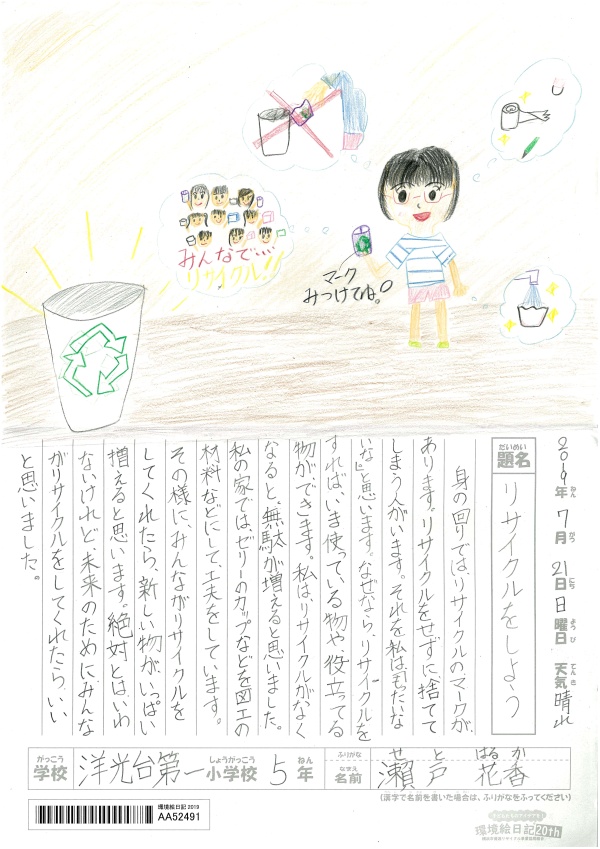 みんなで…
リサイクル!!
マーク
みつけてね。
2019年 7月 21日 日曜日 天気 晴れ
ねん がつ にち ようび てんき
だいめい
題名
リサイクルをしよう
身の回りでは、リサイクルのマークが
あります。リサイクルをせずに、捨てて
しまう人がいます。それを私は、もったいな
いな」と思います。なぜなら、リサイクルを
すれば、いま使っている物や、役立ってる
物ができます。私は、リサイクルがなく
なると、無駄が増えると思いました。
私の家では、ゼリーのカップなどを図工の
材料などにして、工夫をしています。
その様に、みんながリサイクルを
してくれたら、新しい物が、いっぱい
増えると思います。絶対とは、いわ
ないけれど、未来のためにみんな
がリサイクルをしてくれたら、いい
と思いました。
がっこう しょうがっこう ねん
学校 洋光台第一小学校 5年
ふりがな せと はるか
なまえ
名前 瀬戸 花香
(漢字で名前を書いた場合は、ふりがなをふってください)
環境絵日記 2019
AA52491
環境絵日記20th